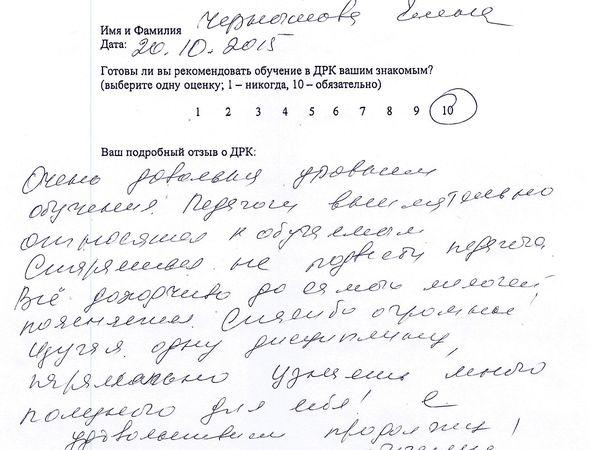 Имя и Фамилия Чернышова Елена
Дата: 20.10.2015
Готовы ли вы рекомендовать обучение в ДРК вашим знакомым?
(выберите одну оценку; 1 – никогда, 10 – обязательно)
1 2 3 4 5 6 7 8 9 10
Ваш подробный отзыв о ДРК:
Очень довольна уровнем
обучения! Педагоги внимательно
относятся к обучаемым
Стараешься не подвести педагога.
Всё доходчиво до самых мелочей
пояснения. Спасибо огромные!
Изучая одну дисциплину,
параллельно узнаешь много
полезного для себя! С
удовольствием продолжил!